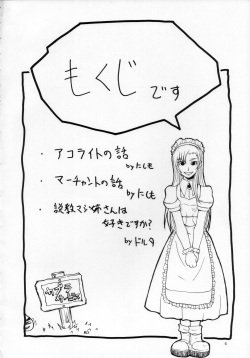 もくじです
・アコライトの話
byたくしも
・マーチャントの話
byたくしも
・説教マジ姉さんは
好きですか?
byドルタ